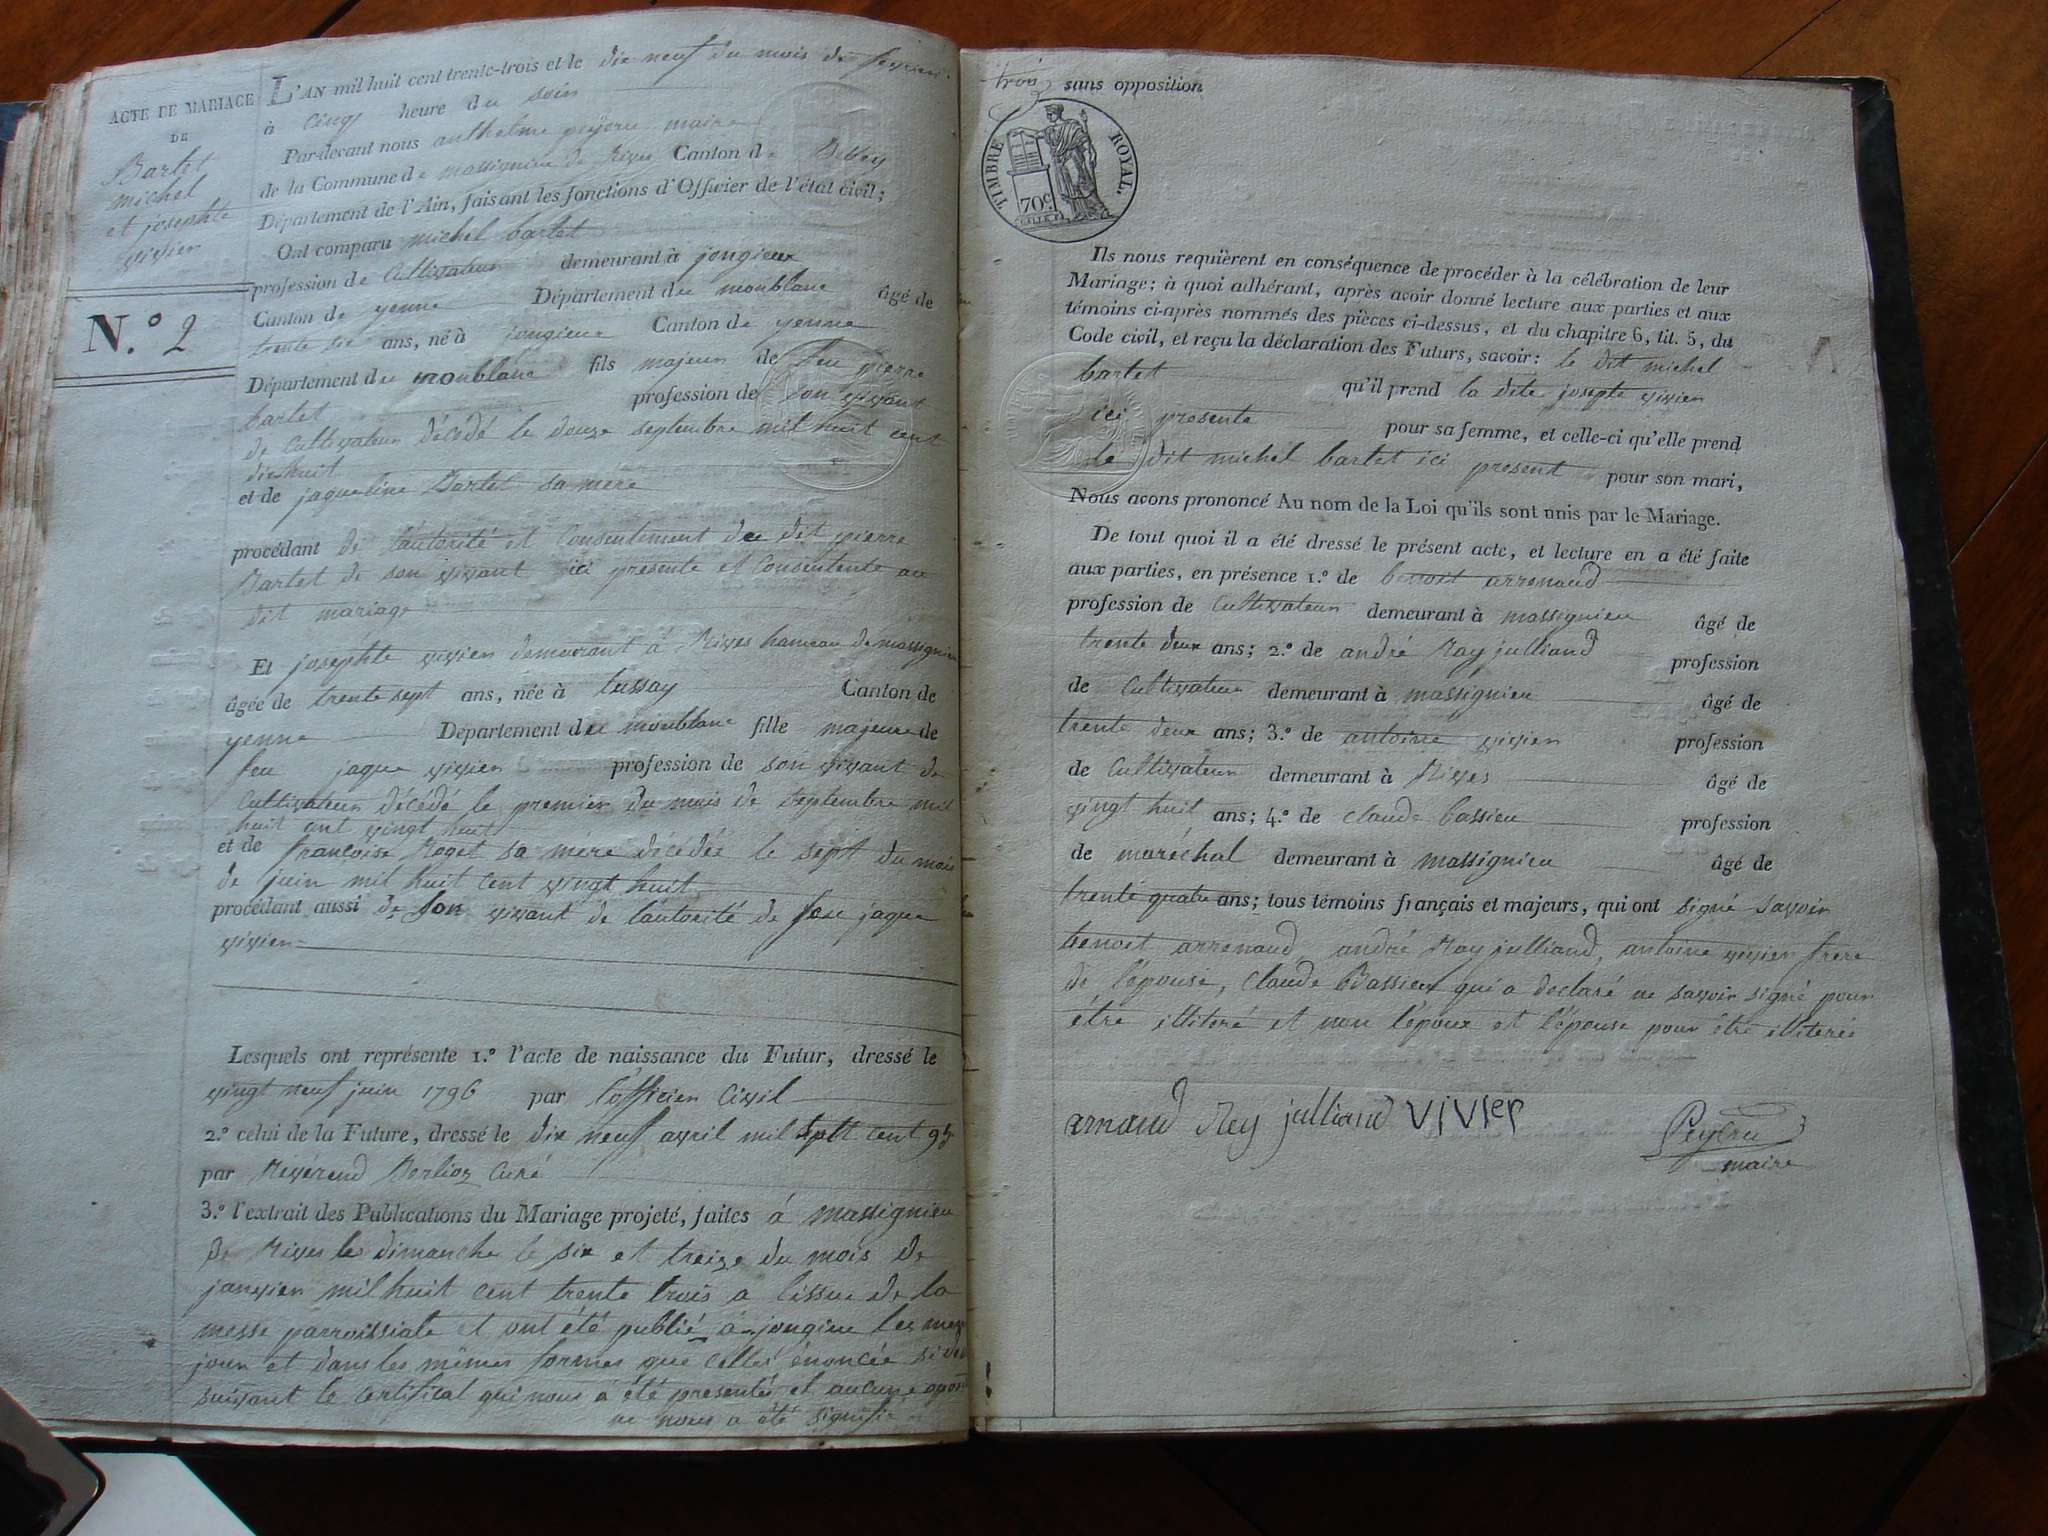 ACTE DE MARIAGE
DE
Bartet
michel
et josephte
vivien
N.º 2
L'AN mil huit cent trente-trois et le dix neuf du mois de fevrier
à cinq heure du soir
Par-devant nous anthelme peyeru maire
de la Commune de massignieu de Rives Canton de Belley
Département de l'Ain, faisant les fonctions d'Officier de l'état civil;
Ont comparu michel bartet
profession de Cultivateur demeurant à jongieux
Canton de yenne Département du monblanc âgé de
trente six ans, né à jongieux Canton de yenne
Département du monblanc fils majeur de feu pierre
bartet profession de son vivant
de Cultivateur décédé le douze septembre mil huit cent
dix huit
et de jaqueline Bartet sa mere
procédant de l'autorité et Consentement du dit pierre
Bartet de son vivant ici presente et Consentente au
dit mariage
Et josephte vivien demeurant á Rives hameau de massignieu
âgée de trente sept ans, née à lussay Canton de
yenne Département du monblanc fille majeure de
feu jaque vivien profession de son vivant de
Cultivateur décédé le premier du mois de septembre mil
huit cent vingt huit
et de françoise Roget sa mère décédée le sept du mois
de juin mil huit cent vingt huit
procédant aussi de son vivant de l'autorité de feu jaque
vivien
Lesquels ont représente 1.º l'acte de naissance du Futur, dressé le
vingt neuf juin 1796 par l'officier Civil
2.º celui de la Future, dressé le dix neuf avril mil sept cent 95
par Révérend Berlioz Curé
3.º l'extrait des Publications du Mariage projeté, faites á massignieu
de Rives les dimanche le six et treize du mois de
janvier mil huit cent trente trois a l'issue de la
messe parroissiale et ont été publié á jongieu les meme
jour et dans les mêmes formes que celles énoncée
suivant le certificat qui nous a été presentés et aucune
ne nous a été signifié
trois sans opposition
TIMBRE ROYAL.
70c
Ils nous requièrent en conséquence de procéder à la célébration de leur
Mariage; à quoi adhérant, après avoir donné lecture aux parties et aux
témoins ci-après nommés des pièces ci-dessus, et du chapitre 6, tit. 5, du
Code civil, et reçu la déclaration des Futurs, savoir: le dit michel
bartet qu'il prend la dite josepte vivien
ici presente pour sa femme, et celle-ci qu'elle prend
le dit michel bartet ici present pour son mari,
Nous avons prononcé Au nom de la Loi qu'ils sont unis par le Mariage.
De tout quoi il a été dressé le présent acte, et lecture en a été faite
aux parties, en présence 1.º de benoit arrenaud
profession de Cultivateur demeurant à massignieu âgé de
trente deux ans; 2.º de andré Ray julliand profession
de Cultivateur demeurant à massignieu âgé de
trente deux ans; 3.º de antoine vivien profession
de Cultivateur demeurant à Rives âgé de
vingt huit ans; 4.º de claude bassieu profession
de maréchal demeurant à massignieu âgé de
trente quatre ans; tous témoins français et majeurs, qui ont signé savoir
benoit arrenaud, andré Ray julliand, antoine vivien frere
de l'épouse, Claude Bassieux qui a declaré ne savoir signé pour
étre illiteré et non l'époux et l'épouse pour être illiterés
arnaud Rey julliand vivier
Peyeru
maire